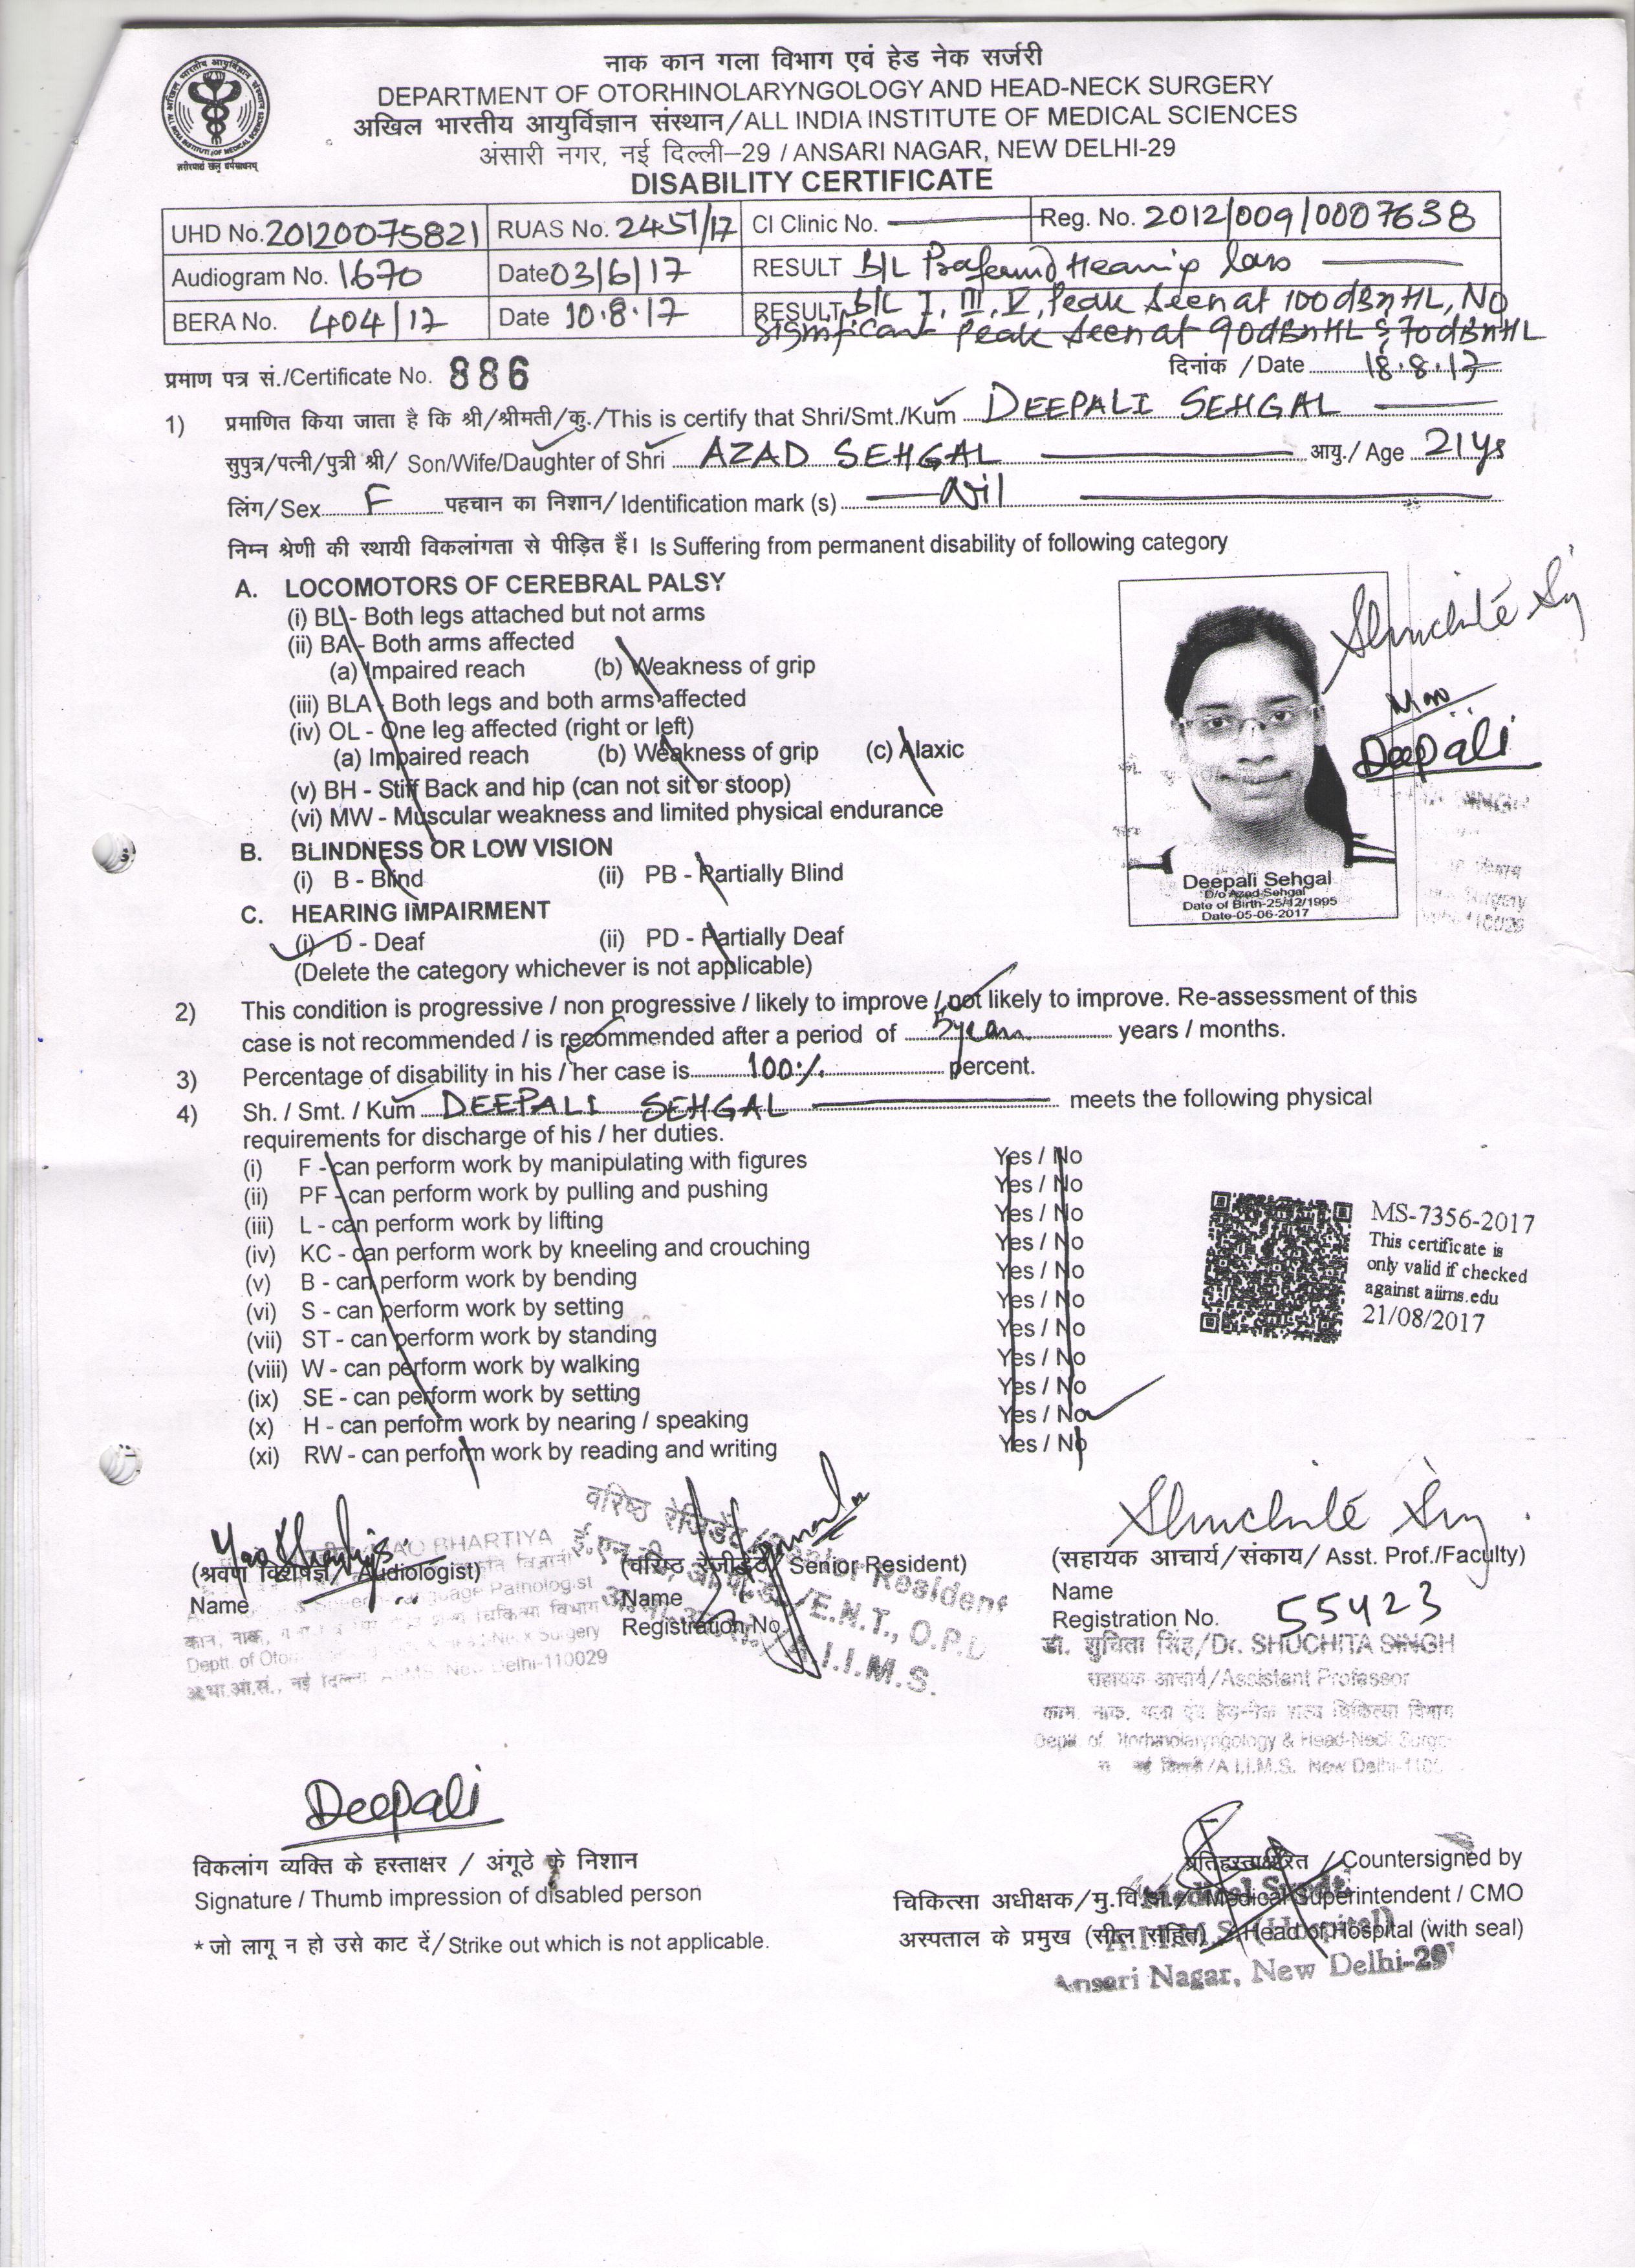 नाक कान गला विभाग एवं हेड नेक सर्जरी
DEPARTMENT OF OTORHINOLARYNGOLOGY AND HEAD-NECK SURGERY
अखिल भारतीय आयुर्विज्ञान संस्थान/ALL INDIA INSTITUTE OF MEDICAL SCIENCES
अंसारी नगर, नई दिल्ली–29 / ANSARI NAGAR, NEW DELHI-29
DISABILITY CERTIFICATE
UHD No. 20120075821 RUAS No. 2451/17 CI Clinic No. Reg. No. 2012/009/0007638
Audiogram No. 1670 Date 03/6/17 RESULT B/L Profound Hearing loss
BERA No. 404/17 Date 10.8.17 RESULT B/L I, III, V, Peak seen at 100dBnHL, No
Significant Peak seen at 90dBnHL & 70dBnHL
प्रमाण पत्र सं./Certificate No. 886 दिनांक / Date 18.8.17
1) प्रमाणित किया जाता है कि श्री/श्रीमती/कु./This is certify that Shri/Smt./Kum DEEPALI SEHGAL
सुपुत्र/पत्नी/पुत्री श्री/ Son/Wife/Daughter of Shri AZAD SEHGAL आयु./ Age 21 ys
लिंग/Sex F पहचान का निशान/ Identification mark (s) Nil
निम्न श्रेणी की स्थायी विकलांगता से पीड़ित हैं। Is Suffering from permanent disability of following category
A. LOCOMOTORS OF CEREBRAL PALSY
(i) BL - Both legs attached but not arms
(ii) BA - Both arms affected
(a) Impaired reach (b) Weakness of grip
(iii) BLA - Both legs and both arms affected
(iv) OL - One leg affected (right or left)
(a) Impaired reach (b) Weakness of grip (c) Alaxic
(v) BH - Stiff Back and hip (can not sit or stoop)
(vi) MW - Muscular weakness and limited physical endurance
B. BLINDNESS OR LOW VISION
(i) B - Blind (ii) PB - Partially Blind
C. HEARING IMPAIRMENT
(i) D - Deaf (ii) PD - Partially Deaf
(Delete the category whichever is not applicable)
Shuchita
Deepali
Deepali Sehgal
D/o Azad Sehgal
Date of Birth-25/12/1995
Date-05-06-2017
2) This condition is progressive / non progressive / likely to improve / not likely to improve. Re-assessment of this
case is not recommended / is recommended after a period of 5 years years / months.
3) Percentage of disability in his / her case is 100% percent.
4) Sh. / Smt. / Kum DEEPALI SEHGAL meets the following physical
requirements for discharge of his / her duties.
(i) F - can perform work by manipulating with figures Yes / No
(ii) PF - can perform work by pulling and pushing Yes / No
(iii) L - can perform work by lifting Yes / No
(iv) KC - can perform work by kneeling and crouching Yes / No
(v) B - can perform work by bending Yes / No
(vi) S - can perform work by setting Yes / No
(vii) ST - can perform work by standing Yes / No
(viii) W - can perform work by walking Yes / No
(ix) SE - can perform work by setting Yes / No
(x) H - can perform work by nearing / speaking Yes / No
(xi) RW - can perform work by reading and writing Yes / No
MS-7356-2017
This certificate is
only valid if checked
against aiims.edu
21/08/2017
(श्रवण विशेषज्ञ/ Audiologist) (वरिष्ठ रेजीडेंट/ Senior Resident) (सहायक आचार्य/संकाय/ Asst. Prof./Faculty)
Name Name Name
Registration No. Registration No. 55423
वरिष्ठ रेजिडेंट/Senior Resident
/E.N.T., O.P.D
A.I.I.M.S.
BHARTIYA
New Delhi-110029
डॉ. शुचिता सिंह/Dr. SHUCHITA SINGH
सहायक आचार्य/Assistant Professor
Deptt. of Otorhinolaryngology & Head-Neck
/A.I.I.M.S. New Delhi
Deepali
विकलांग व्यक्ति के हस्ताक्षर / अंगूठे के निशान
Signature / Thumb impression of disabled person
* जो लागू न हो उसे काट दें/ Strike out which is not applicable.
प्रतिहस्ताक्षरित / Countersigned by
चिकित्सा अधीक्षक/मु.वि.अ./ Medical Superintendent / CMO
अस्पताल के प्रमुख (सील सहित) / Head of Hospital (with seal)
Medical Supdt.
A.I.I.M.S. (Hospital)
Ansari Nagar, New Delhi-29